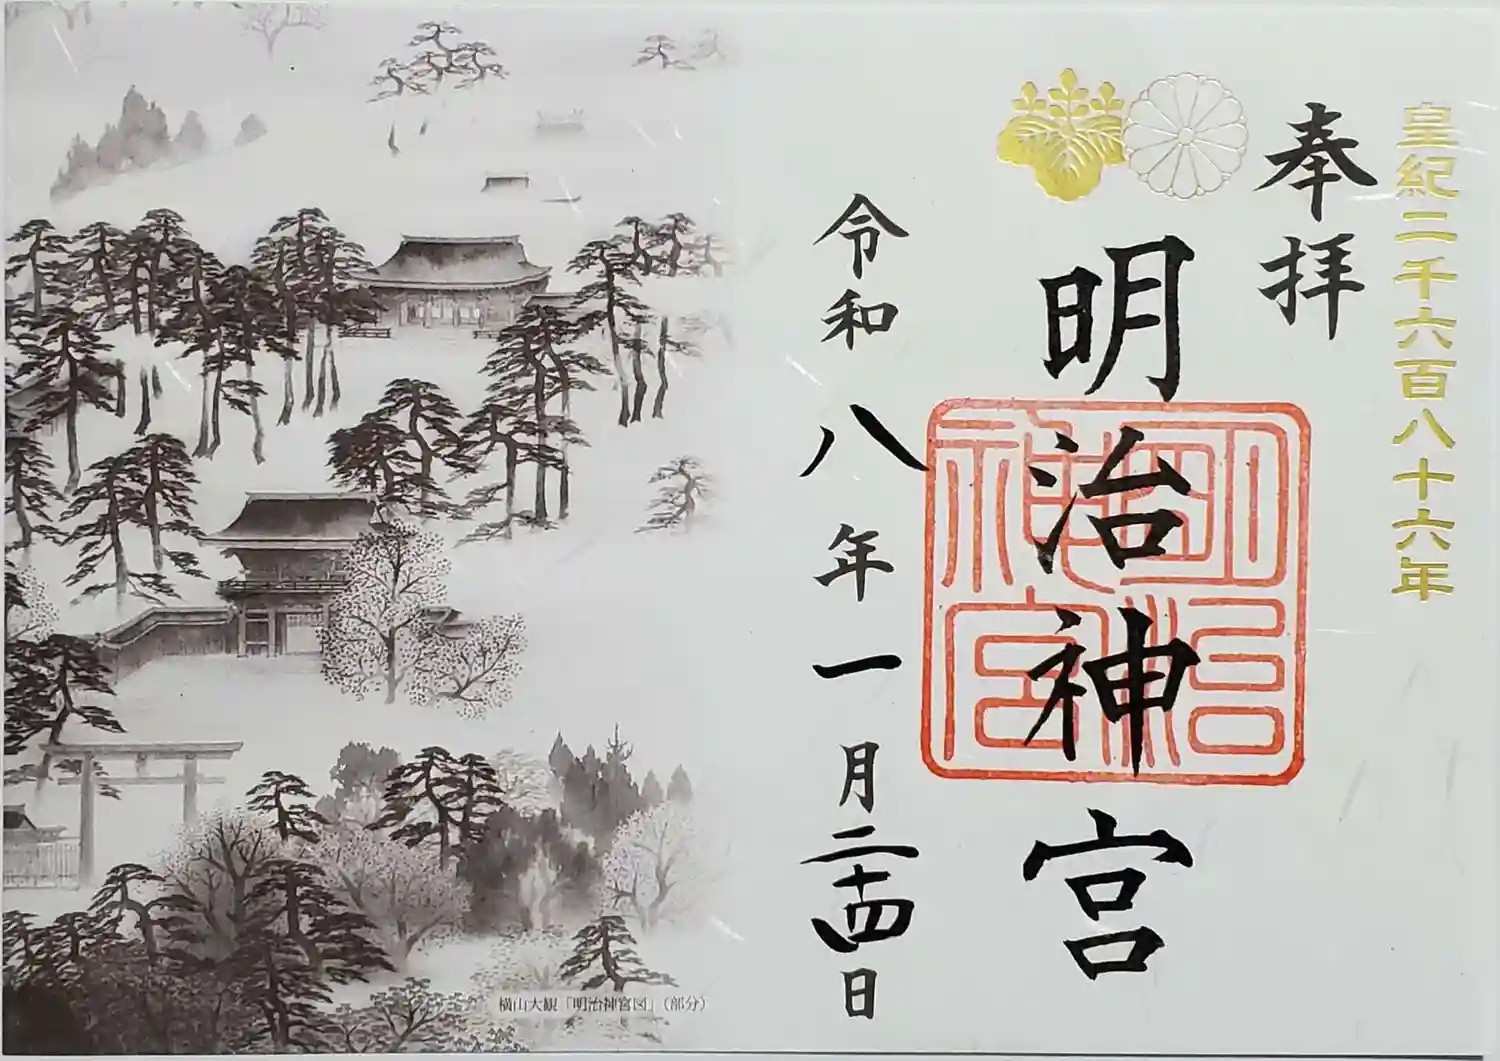 皇紀二千六百八十六年
奉拝
明治神宮
明治神宮
令和八年一月二十四日
横山大観「明治神宮図」(部分)